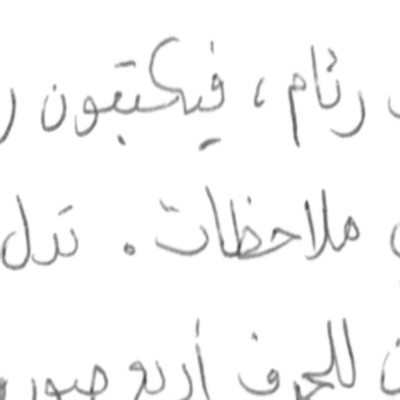 رئام ، فيكتبون
ملاحظات . تدل
للحرف أربع صور